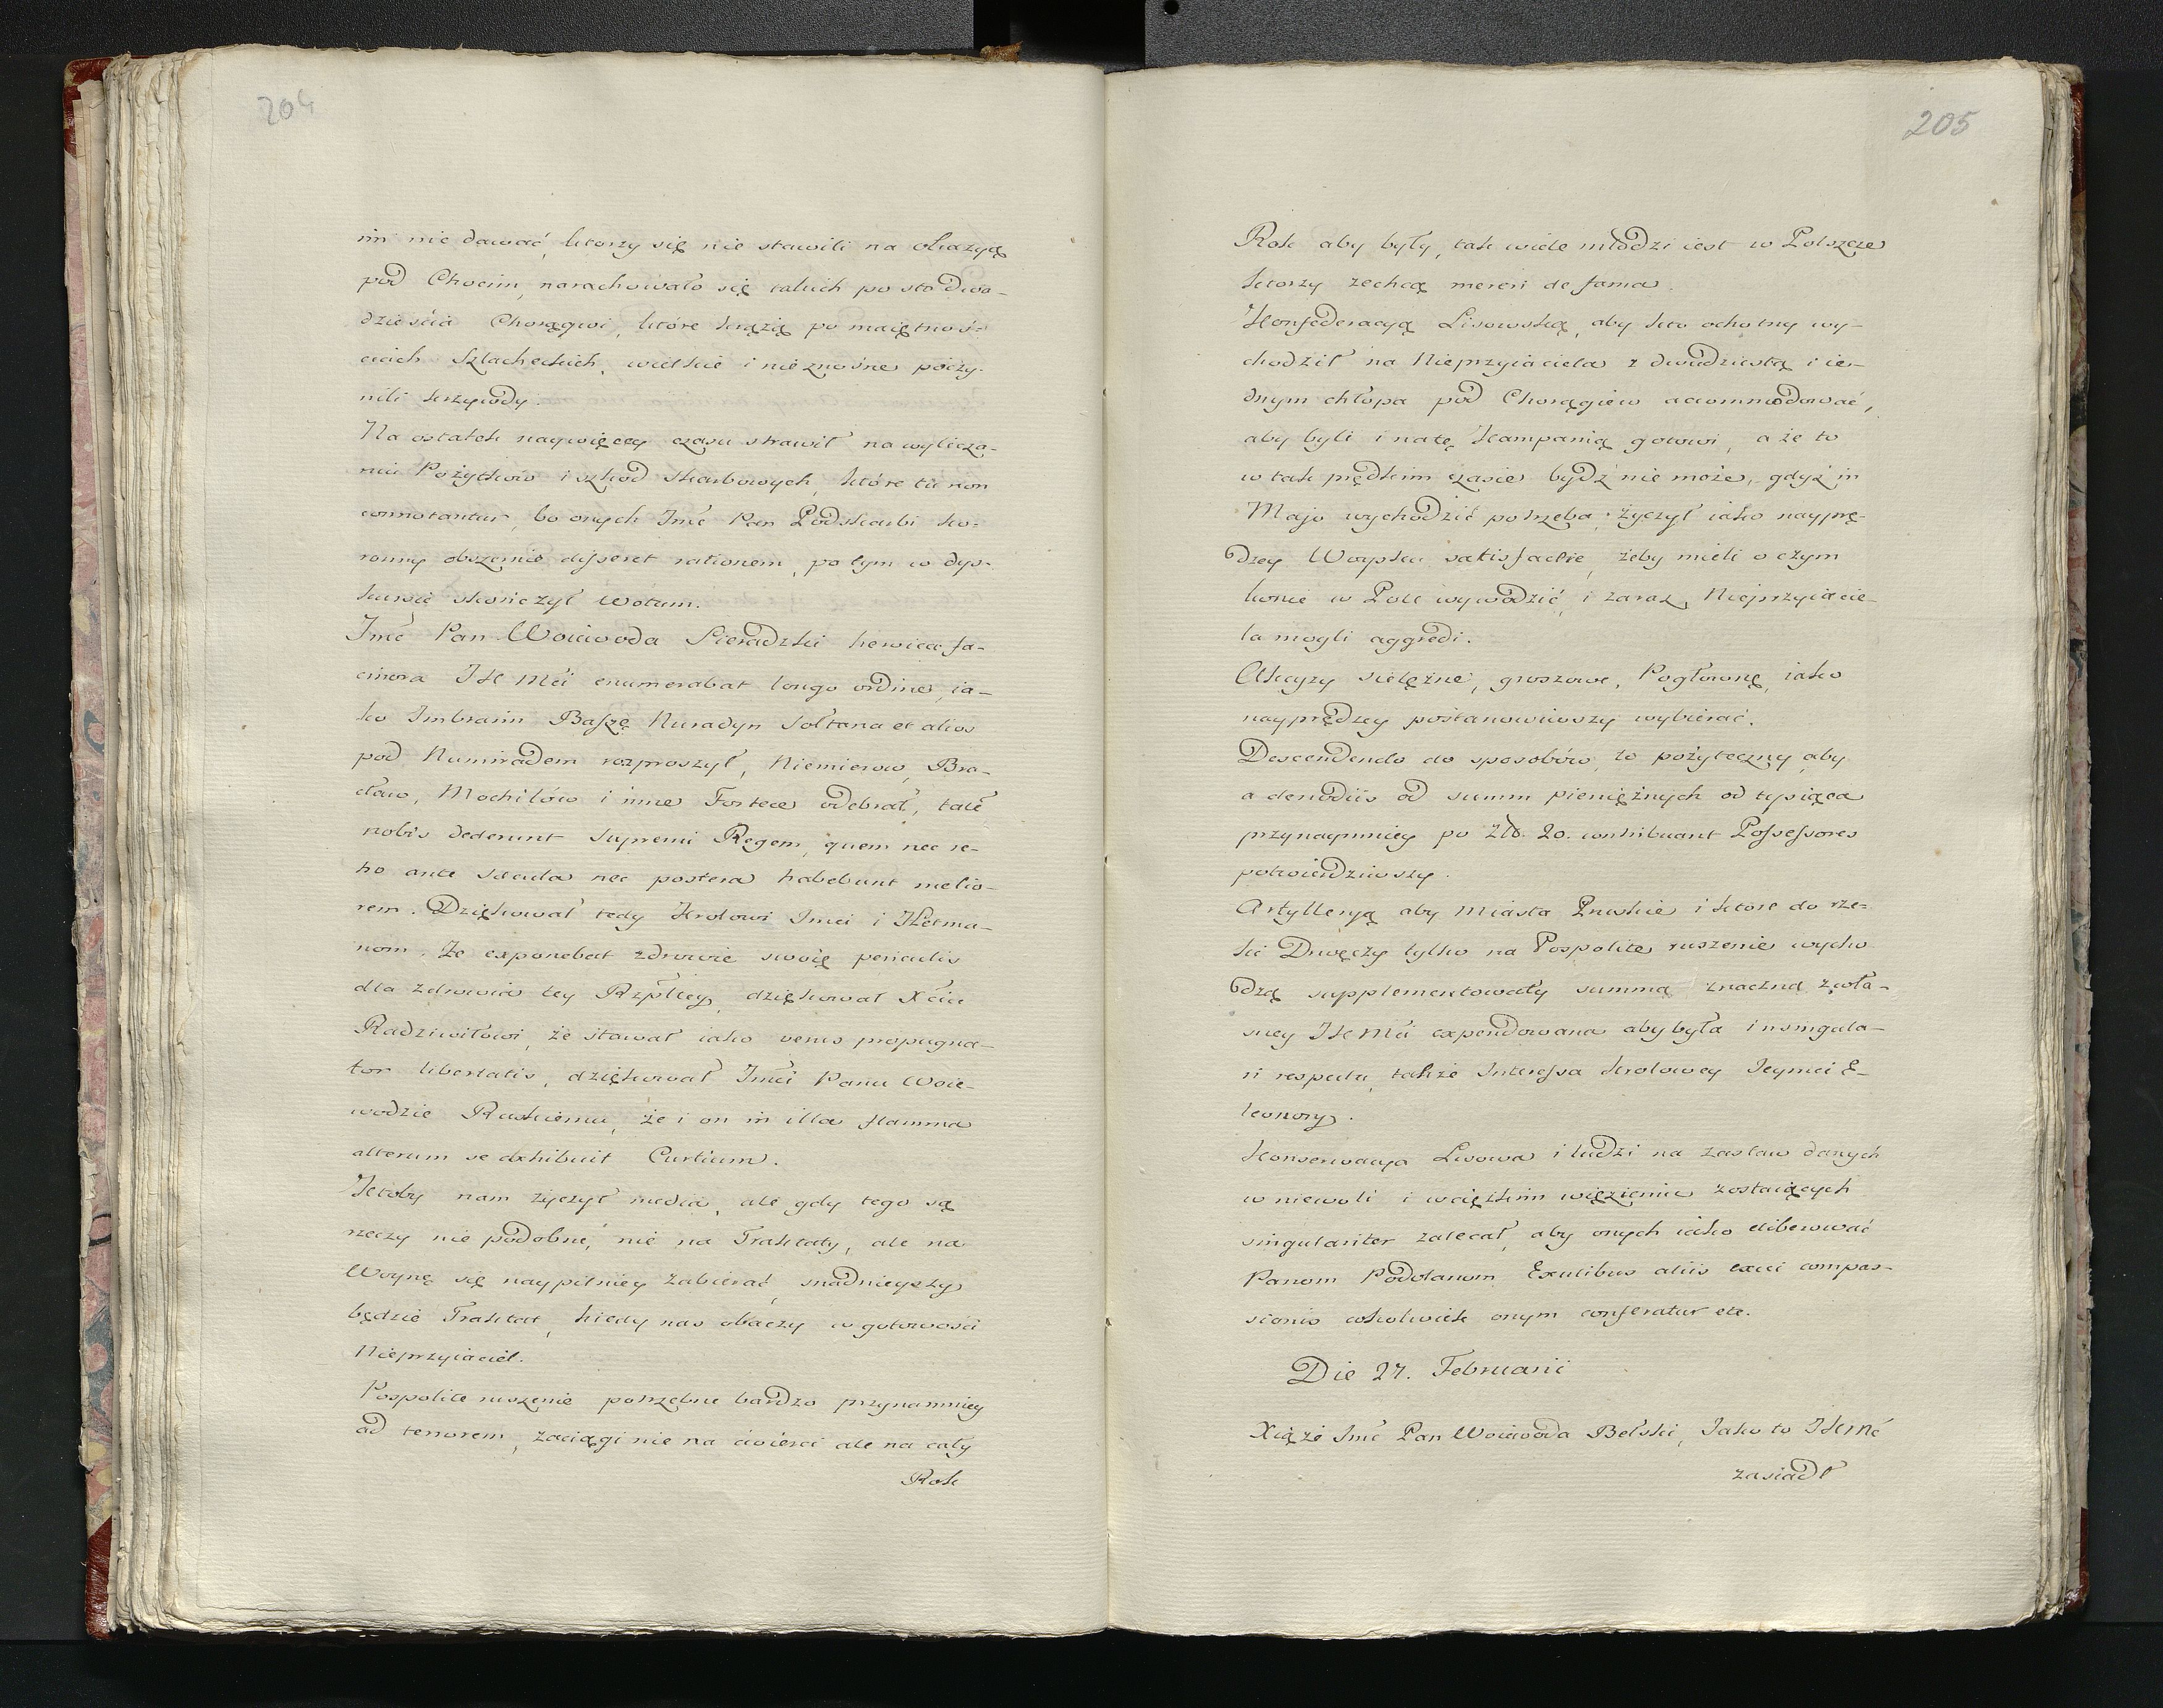 204
im nie dawać, ktorzy się nie stawili na okazyą
pod Chocim, narachowało się takich po sto dwa-
dzieścia Chorągwi, które krążą po maiętnoś-
ciach Szlacheckich, wielkie i nieznośne poczy-
nili krzywdy.
Na ostatek naywięcey czasu strawił na wylicza-
niu Pożytków i szkod skarbowych, które tu non
connotantur, bo onych Jmć Pan Podskarbi ko-
ronny obszernie disseret rationem, po tym w dys-
kursie skończył Wotum.
Jmć Pan Woiewoda Sieradzki heroica fa-
cinora JK Mci enumerabat longo ordine, ia-
ko Imbraim Baszę Nuradyn Sołtana et alios
pod Numiradem rozproszył, Niemierow, Bra-
cław, Mochilów i inne Fortece odebrał, tale
nobis dederunt Supremi Regem, quem nec re-
tro ante saecula nec postera habebunt melio-
rem. Dziękował tedy Krolowi Jmci i Hetma-
nom, Ze exponebat zdrowie swoię periculis
dla zdrowia tey Rzpltey, dziękował Xciu
Radziwiłowi, że stawał iako verus propugna-
tor libertatis, dziękował Jmci Panu Woie-
wodzie Ruskiemu, że i on in illa flamma
alterum se exhibuit Curtium.
Ktoby nam życzył media, ale gdy tego są
rzeczy nie podobne, nie na Traktaty, ale na
Woynę się naypilniey zabierać, snadnieyszy
będzie Traktat, kiedy nas obaczy w gotowości
Nieprzyiaciel.
Pospolite ruszenie potrzebne bardzo przynamniey
ad terrorem, zaciągi nie na ćwierci ale na cały
Rok
205
Rok aby były, tak wiele młodzi iest w Polszcze
ktorzy zechcą mereri de fama.
Konfederacyą Lisowską, aby kto ochotny wy-
chodził na Nieprzyiaciela z dwudziestą i ie-
dnym chłopa pod Chorągiew accommodować,
aby byli i na tę Kampanią gotowi, a że to
w tak prędkim czasie bydź nie może, gdyż in
Majo wychodzić potrzeba, życzył iako nayprę-
dzey Woysku satisfactie, żeby mieli o czym
konie w Pole wywodzić, i zaraz Nieprzyiacie-
la mogli aggredi.
Akcyzy sielężne, groszowe, Pogłownę, iako
nayprędzey postanowiwszy wybierać.
Descendendo do sposobów, to pożyteczny, aby
a denodiis od summ pieniężnych od tysiąca
przynaymniey po Zło. 20. contribuant Possessores
potwierdziwszy.
Artylleryą aby Miasta Pruskie i ktore do rze-
ki Drwęczy tylko na Pospolite ruszenie wycho
dzą supplementowały summą znaczną z wła-
sney JK Mci expendowana aby była in singula-
ri respectu, także Interessa krolowey Jeymci E-
leonory.
Konserwacya Lwowa i ludzi na zastaw danych
w niewoli i w cięzkim więzieniu zostaiących
singulariter zalecał, aby onych iako eliberować
Panom Podolanom Exulibus aliis exui compas-
sionis cokolwiek onym conferatur etc.
Die 27. Februarii
Xiąże Jmć Pan Woiewoda Bełski, Jako to JKrmć
zasiadł